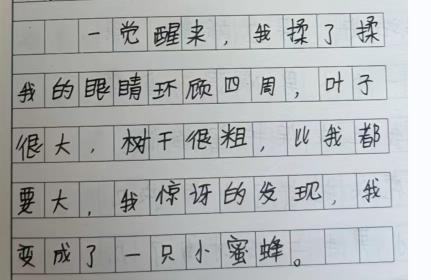 一觉醒来，我揉了揉
我的眼睛环顾四周，叶子
很大，树干很粗，比我都
要大，我惊讶的发现，我
变成了一只小蜜蜂。